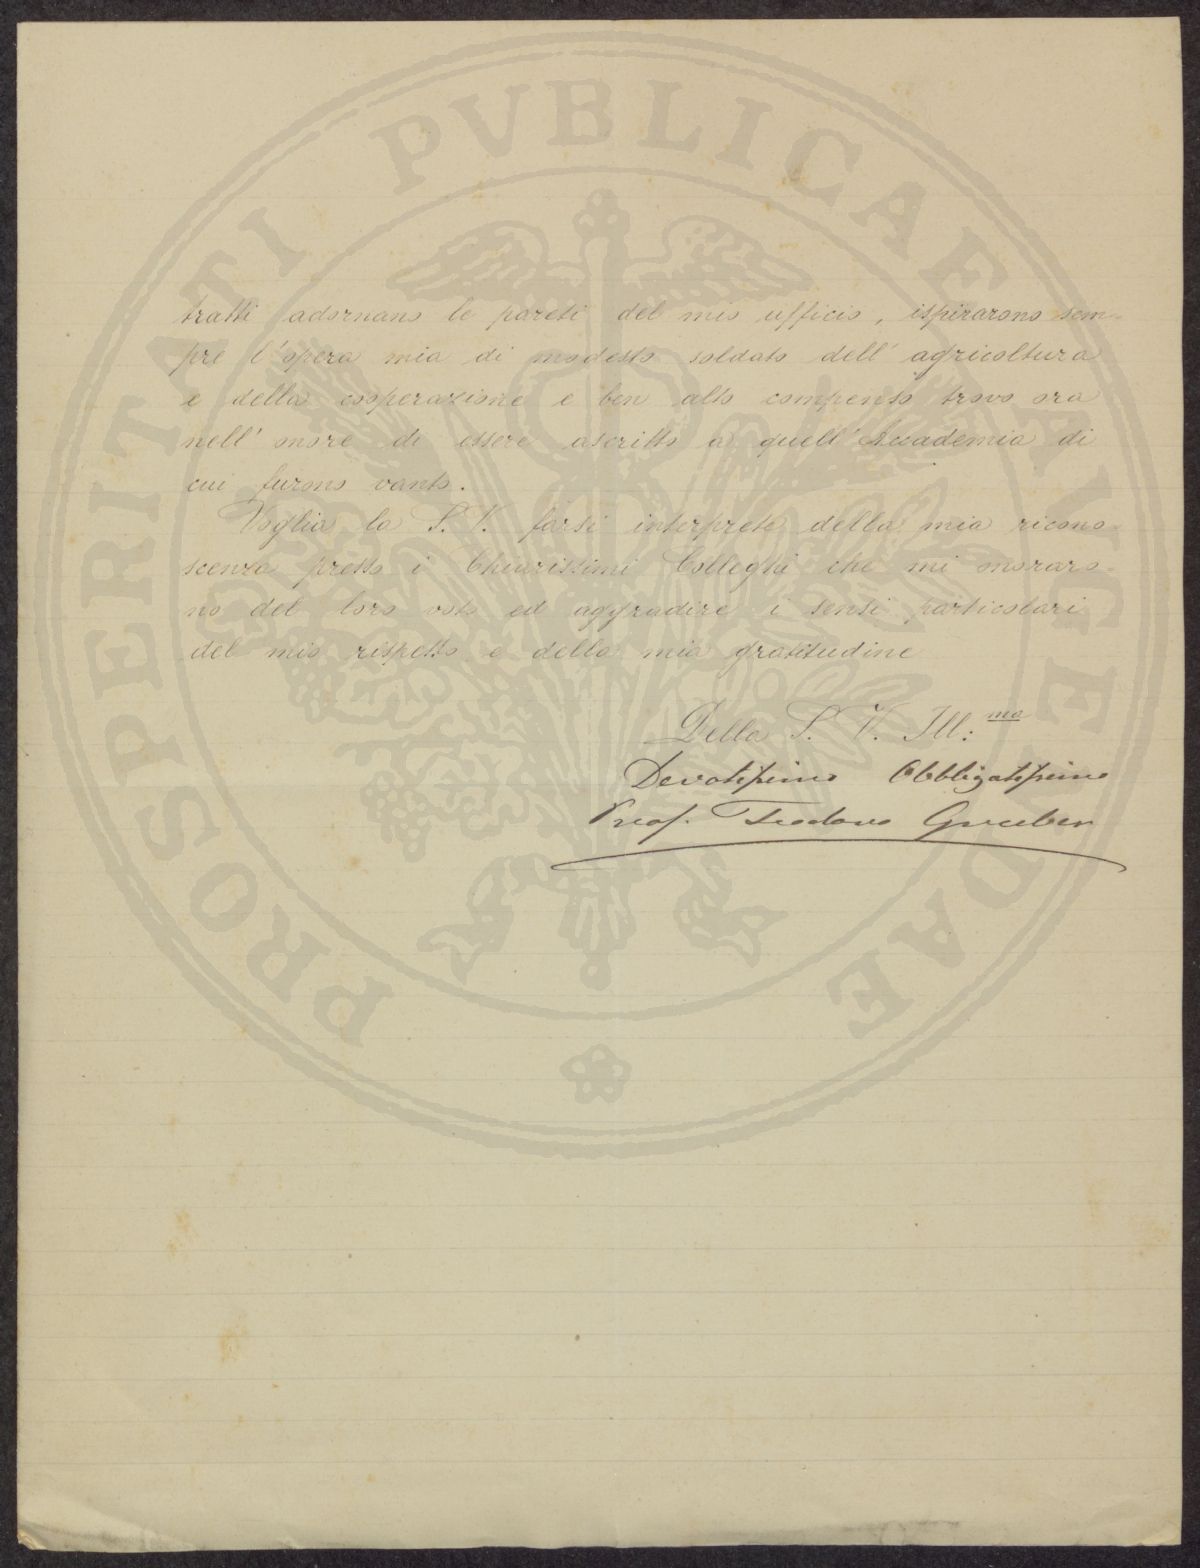 PROSPERITATI PVBLICAE AVGENDAE
tratti adornano le pareti del mio ufficio, ispirarono sem-
pre l'opera mia di modesto soldato dell'agricoltura
e della cooperazione e ben alto compenso trovo ora
nell'onore di essere ascritto a quell'Accademia di
cui furono vanto.
Voglia la S. V. farsi interprete della mia ricono-
scenza presso i Chiarissimi Colleghi che mi onoraro-
no del loro voto ed aggradire i sensi particolari
del mio rispetto e della mia gratitudine
Della S. V. Ill:ma
Devotissimo Obbligatissimo
Prof. Teodoro Gruber